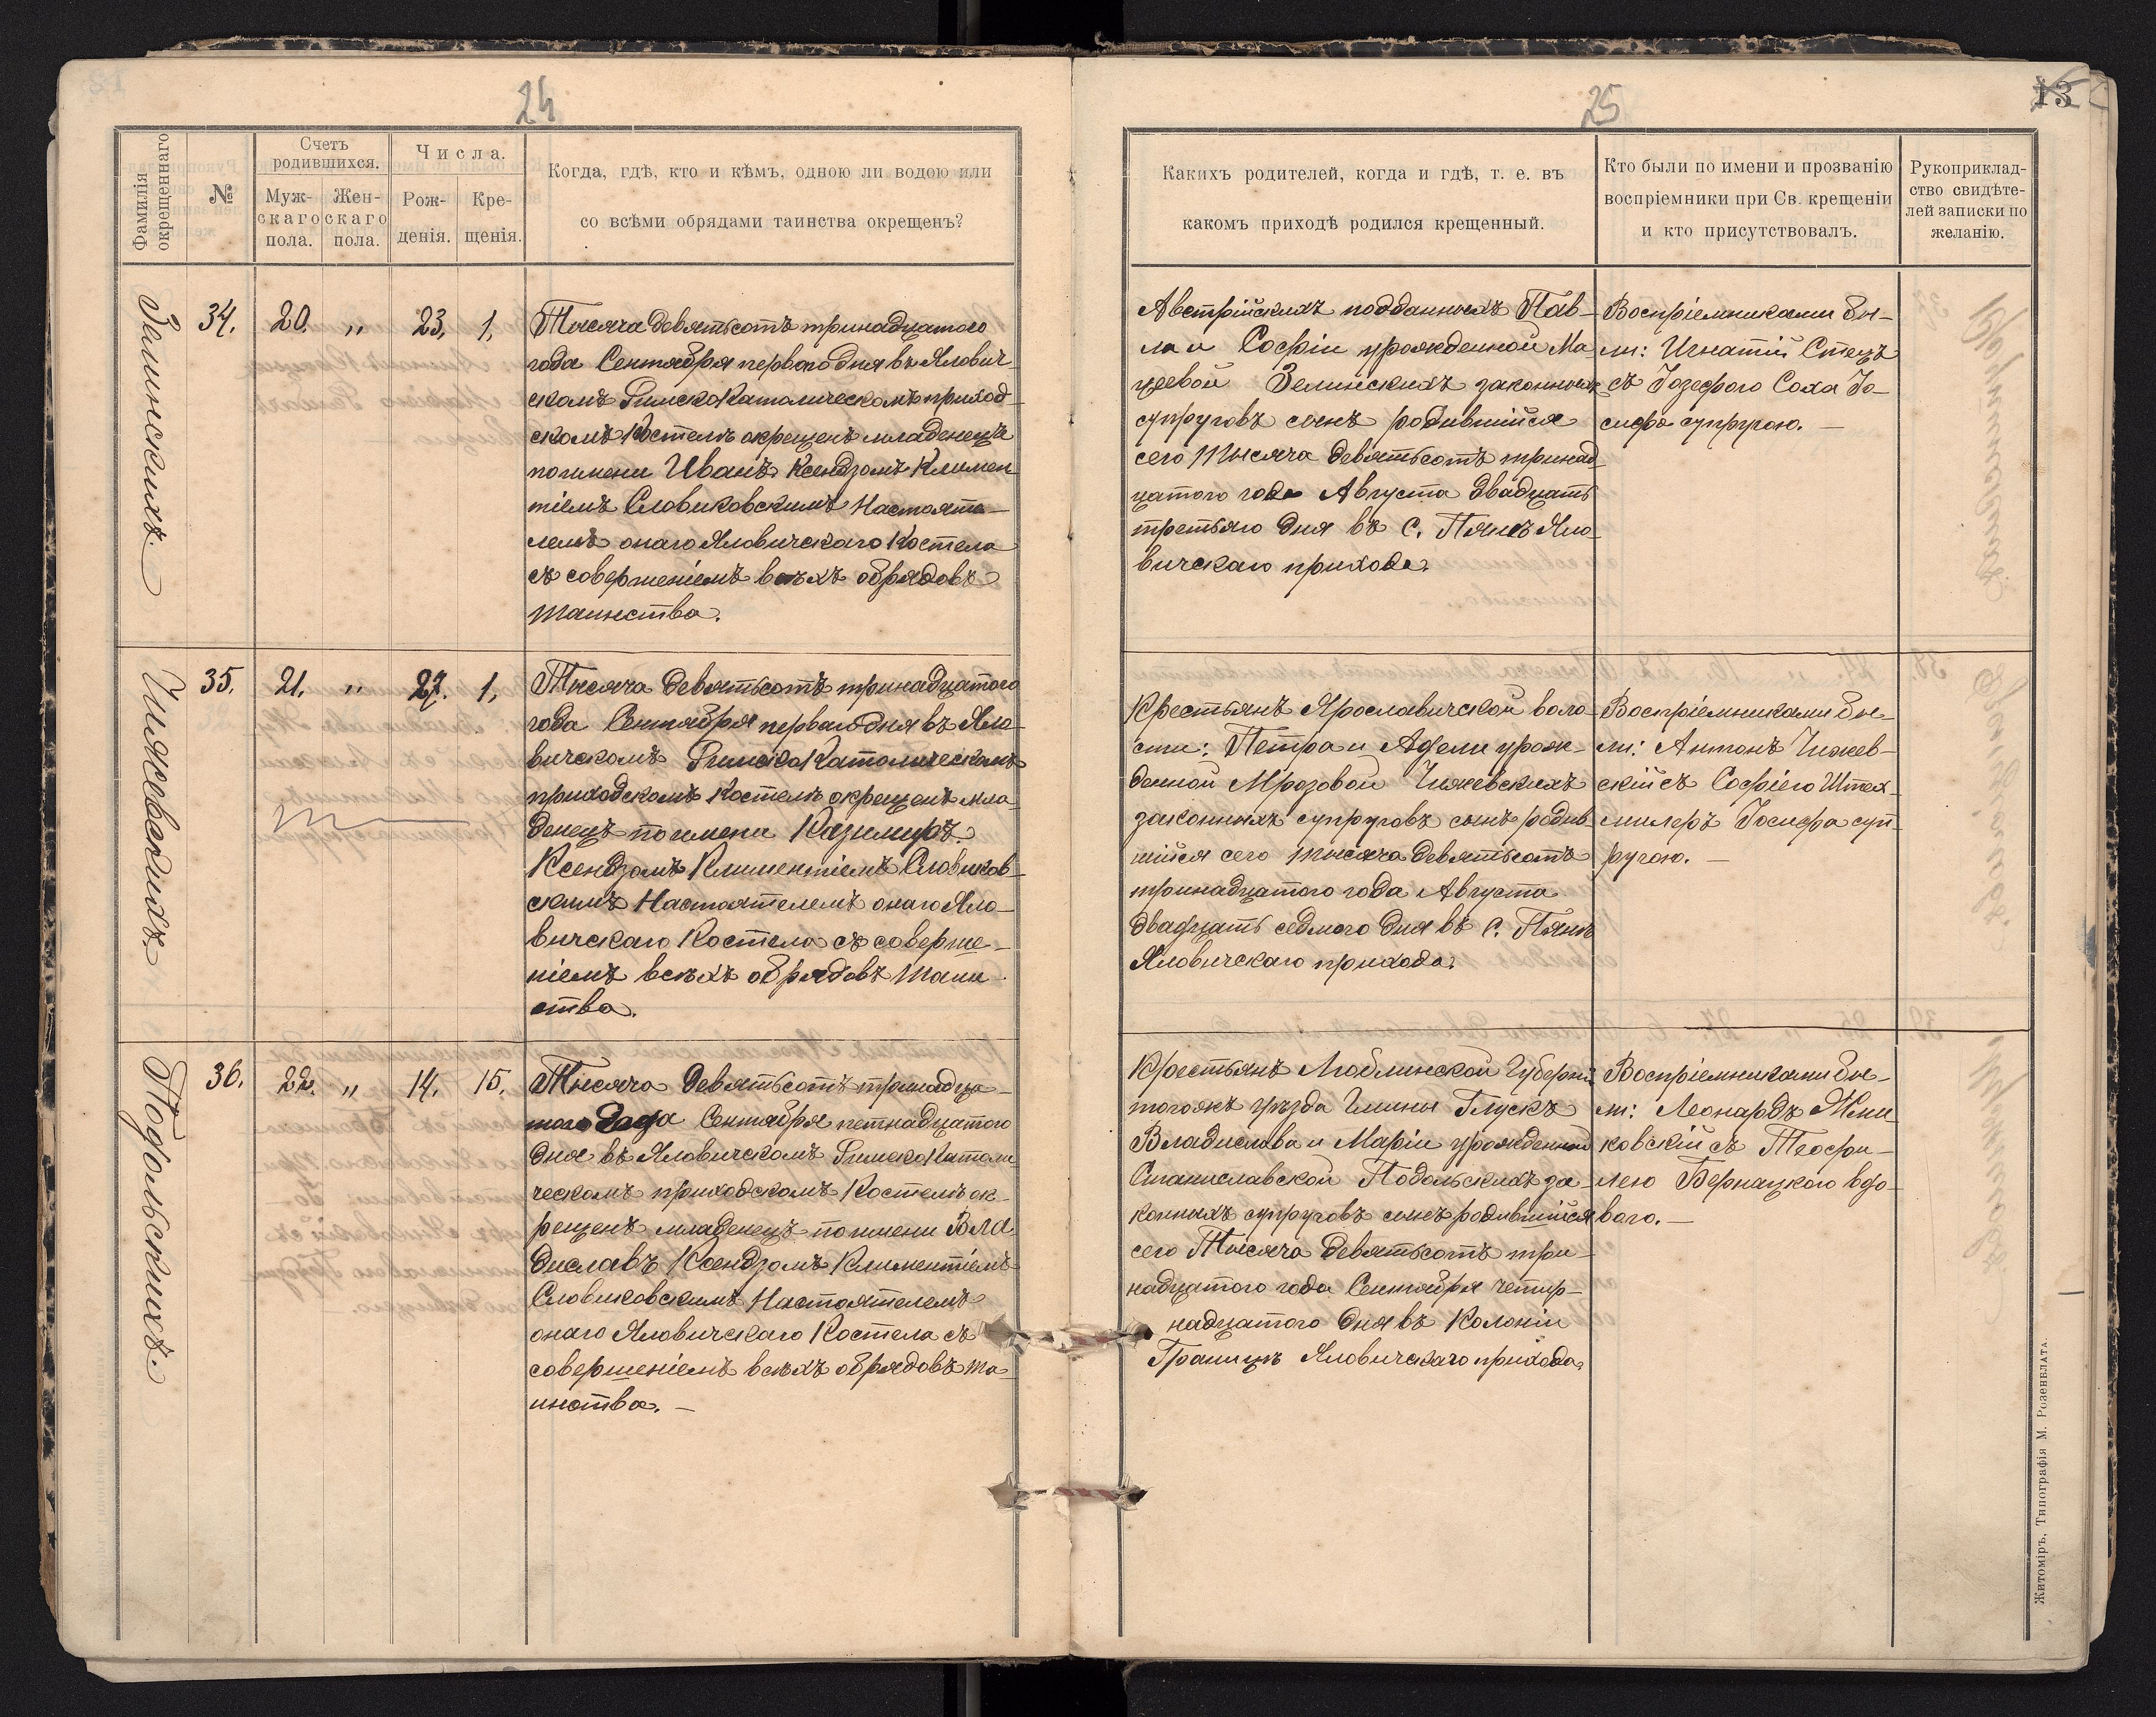 24
Фамилія
окрещеннаго
№
Счетъ
родившихся.
Муж-
скаго
пола.
Жен-
скаго
пола.
Числа.
Рож-
денія.
Кре-
щенія.
Когда, гдѣ, кто и кѣмъ, одною ли водою или
со всѣми обрядами таинства окрещенъ?
Зелинскихъ.
34.
20.
"
23,
1,
Тысяча девятьсотъ тринадцатого
года Сентября первого дня въ Ялович-
скомъ Римско Католическомъ приход-
скомъ Костелѣ окрещенъ младенецъ
по имени Иванъ Ксендзомъ Климен
тіемъ Словиковскимъ Настояте-
лемъ онаго Яловичскаго Костела
съ совершеніемъ всѣхъ обрядовъ
таинства.
Чижевскихъ.
35.
21.
"
27.
1,
Тысяча девятьсотъ тринадцатого
года Сентября перваго дня въ Яло-
вичскомъ Римско Католическомъ
приходскомъ Костелѣ окрещенъ мла
денецъ по имени Казимиръ
Ксендзомъ Климентіемъ Словиков-
скимъ Настоятелемъ онаго Яло-
вичскаго Костела съ соверше-
ніемъ всѣхъ обрядовъ таин
ства.
Подольскихъ.
36.
22.
"
14,
15,
Тысяча девятьсотъ тринадца-
того года Сентября петнадцатого
дня въ Яловичскомъ Римско Католи
ческомъ приходскомъ Костелѣ ок-
рещенъ младенецъ по имени Вла
диславъ Ксендзомъ Климентіемъ
Словиковскимъ Настоятелемъ
онаго Яловичскаго Костела съ
совершеніемъ всѣхъ обрядовъ та-
инства. –
25
13
Какихъ родителей, когда и гдѣ, т. е. въ
какомъ приходѣ родился крещенный.
Кто были по имени и прозванію
воспріемники при Св. крещеніи
и кто присутствовалъ.
Рукоприклад-
ство свидѣте-
лей записки по
желанію.
Австрійскихъ подданныхъ Пав-
ла и Софіи урожденной Ма
цеевой Зелинскихъ законныхъ
супруговъ сынъ родившійся
сего тысяча девятьсотъ тринад
цатого года Августа двадцать
третьяго дня въ с. Пянѣ Яло
вичскаго прихода.
Воспріемниками бы-
ли: Игнатій Стецъ
съ Іозефою Соха Іо-
сифа супругою. –
Крестьянъ Ярославичской воло
сти: Петра и Адели урож-
денной Мрозовой Чижевскихъ
законныхъ супруговъ сынъ родив
шійся сего тысяча девятьсотъ
тринадцатого года Августа
двадцать седмого дня въ с. Пянѣ
Яловичскаго прихода.
Воспріемниками бы-
ли: Антонъ Чижев-
скій съ Софіею Штех-
миллеръ Іосифа суп-
ругою. –
Крестьянъ Люблинской Губерніи
тогожъ уѣзда Гмины Глускъ
Владислава и Маріи урожденной
Станиславской Подольскихъ за-
конныхъ супруговъ сынъ родившійся
сего Тысяча девятьсотъ три-
надцатого года Сентября четыр-
надцатого дня въ Колоніи
Границѣ Яловичскаго прихода.
Воспріемниками бы-
ли: Леонардъ
ковскій съ Теофи-
лею Бернацкою вдо-
вою. –
Житоміръ, Типографія М. Розенблата.